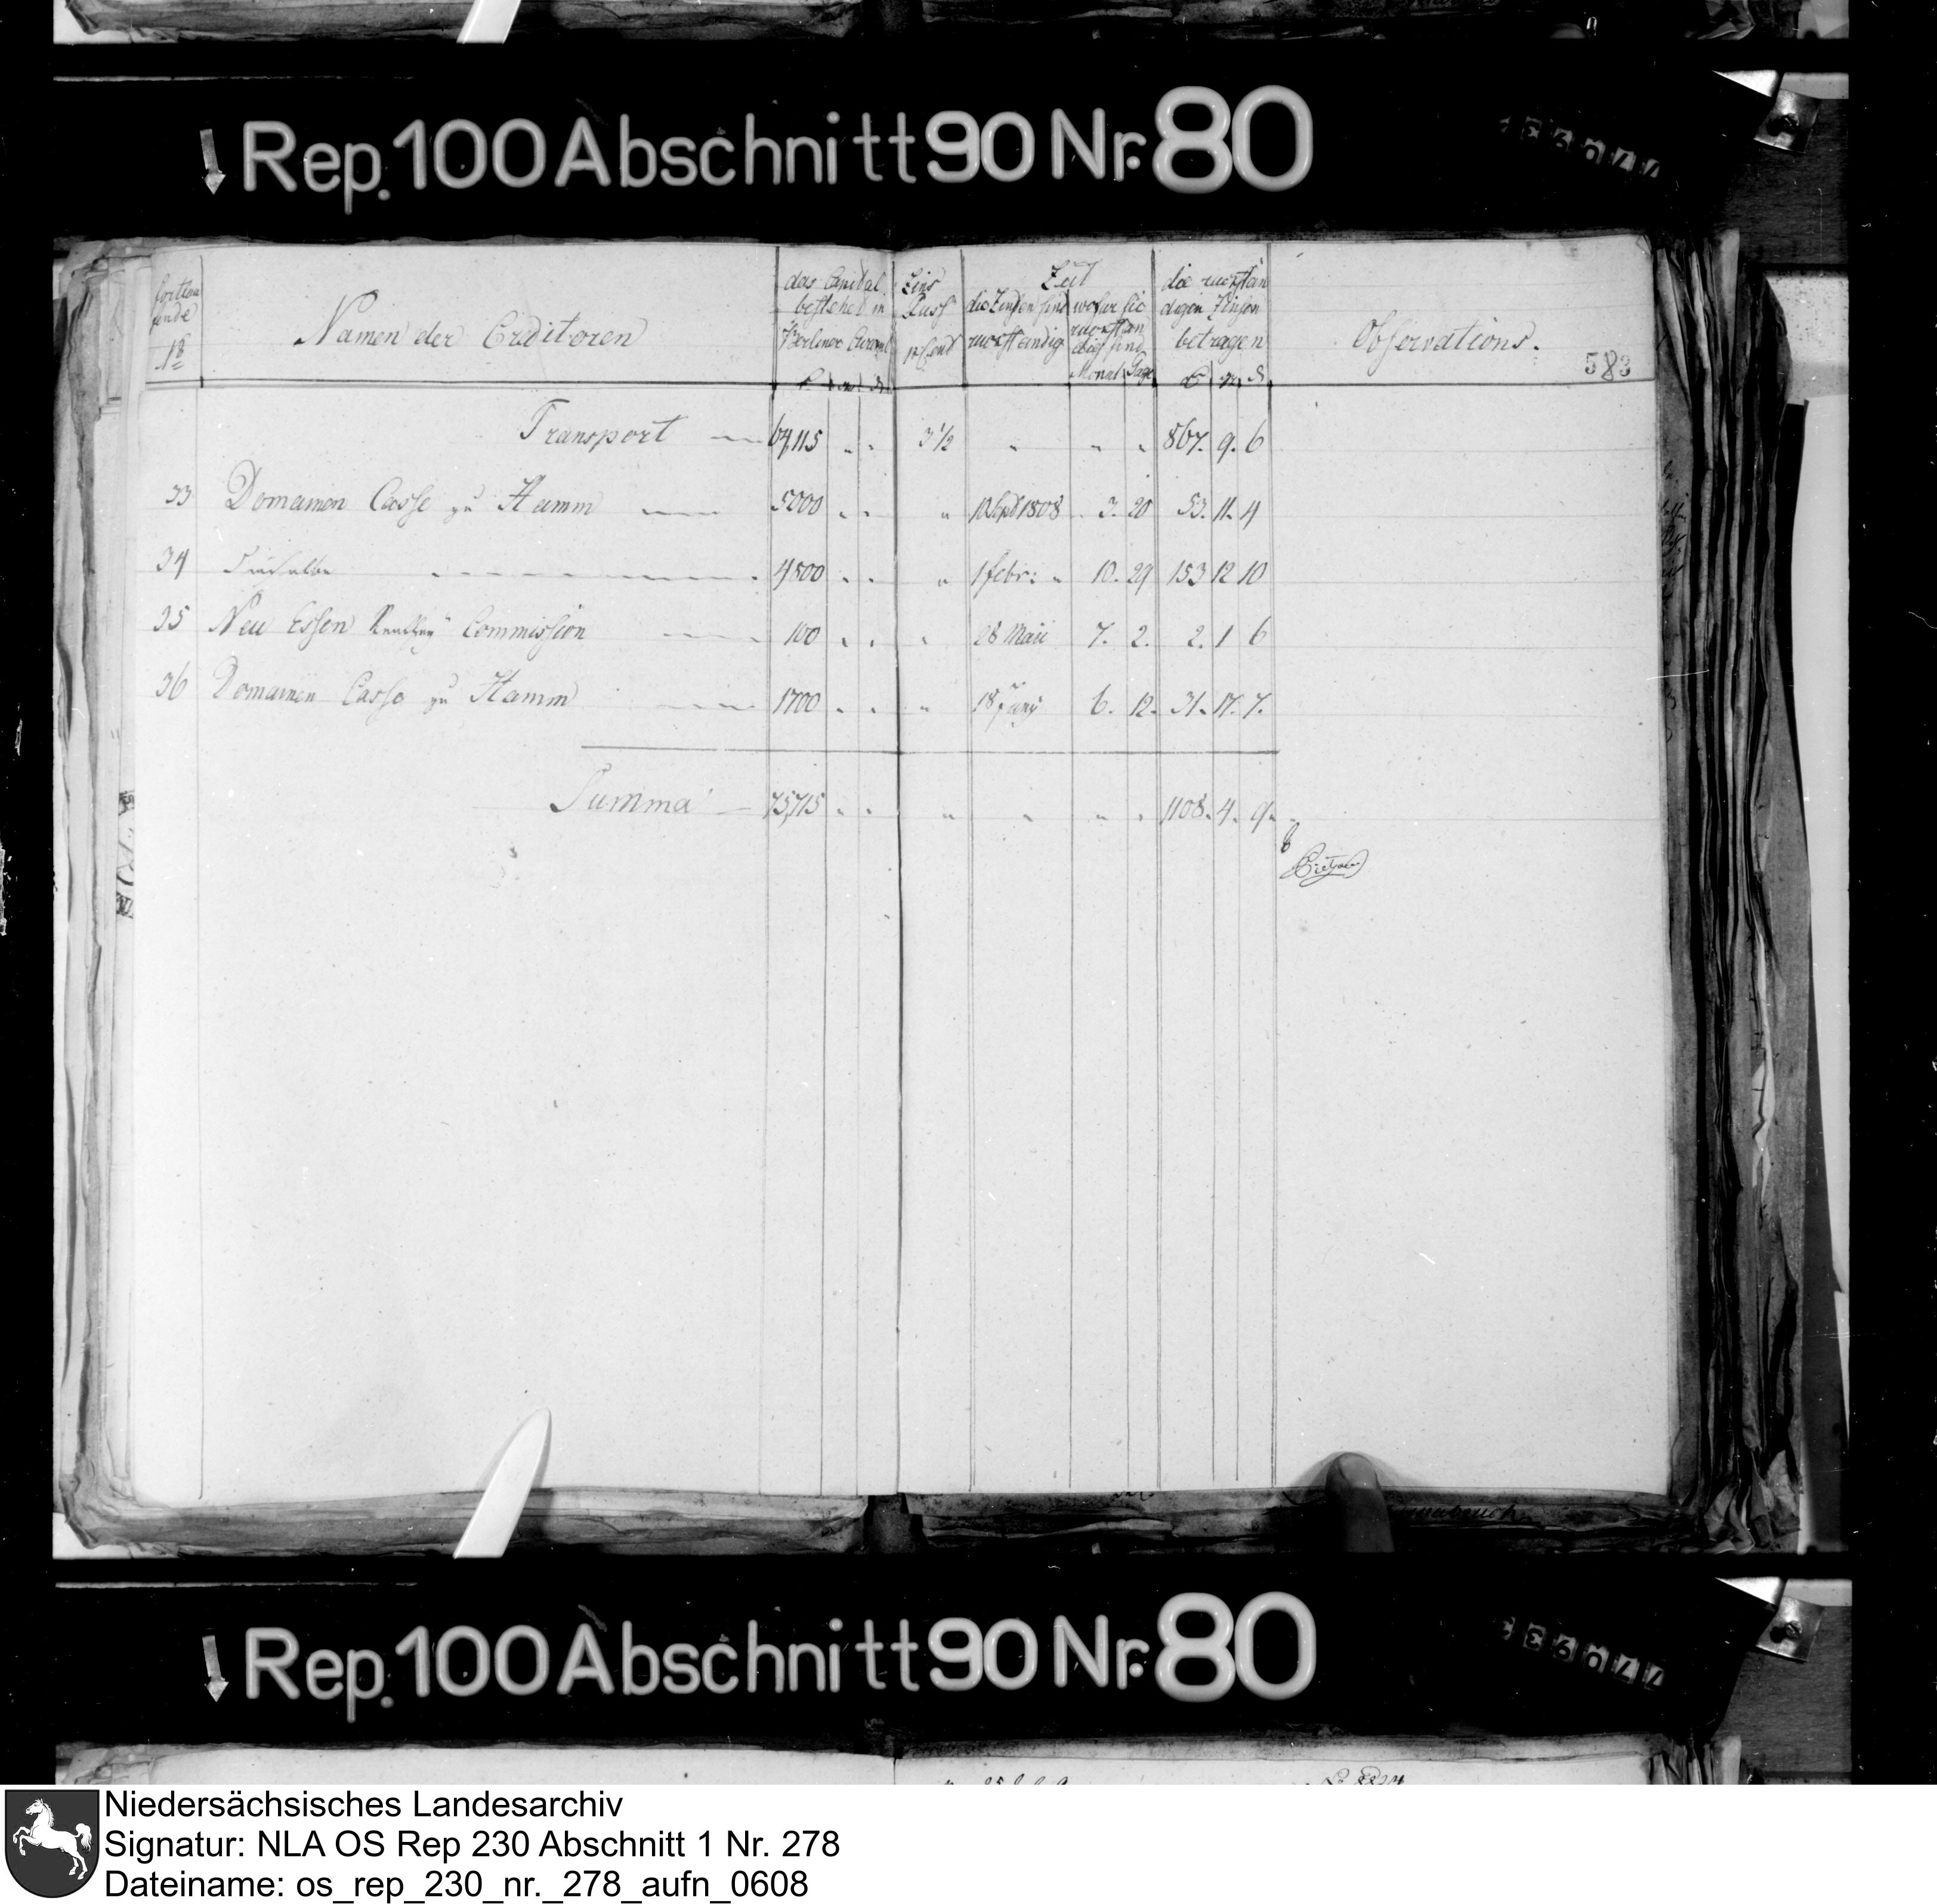 Rep. 100 Abschnitt 90 Nr. 80
fortlau
fende
No
Namen der Creditoren
das Capital
bestehet in
Berliner Courant
Zins
Fuss
Zeit
die Zinsen sind
rückständig
wofür sie
rückstän
dig sind
Monat Tage
die rückstän
digen Zinsen
betragen
Observations.
583
Transport 64,115 " " 3 1/2 " " " 867. 9. 6
33 Domainen Casse zu Hamm 5000 " " " 10 Sept 1808 3. 20 53. 11. 4
34 Dieselbe 4800 " " " 1 febr: " 10. 29 153 12 10
35 Neu Essen Commission 100 " " " 28 Maii 7. 2. 2. 1 6
36 Domainen Casse zu Hamm 1700 " " " 18 Juny 6. 12. 31. 17. 7.
Summa 75,715 " " " " " " 1108. 4. 9.
Rep. 100 Abschnitt 90 Nr. 80
Niedersächsisches Landesarchiv
Signatur: NLA OS Rep 230 Abschnitt 1 Nr. 278
Dateiname: os_rep_230_nr._278_aufn_0608